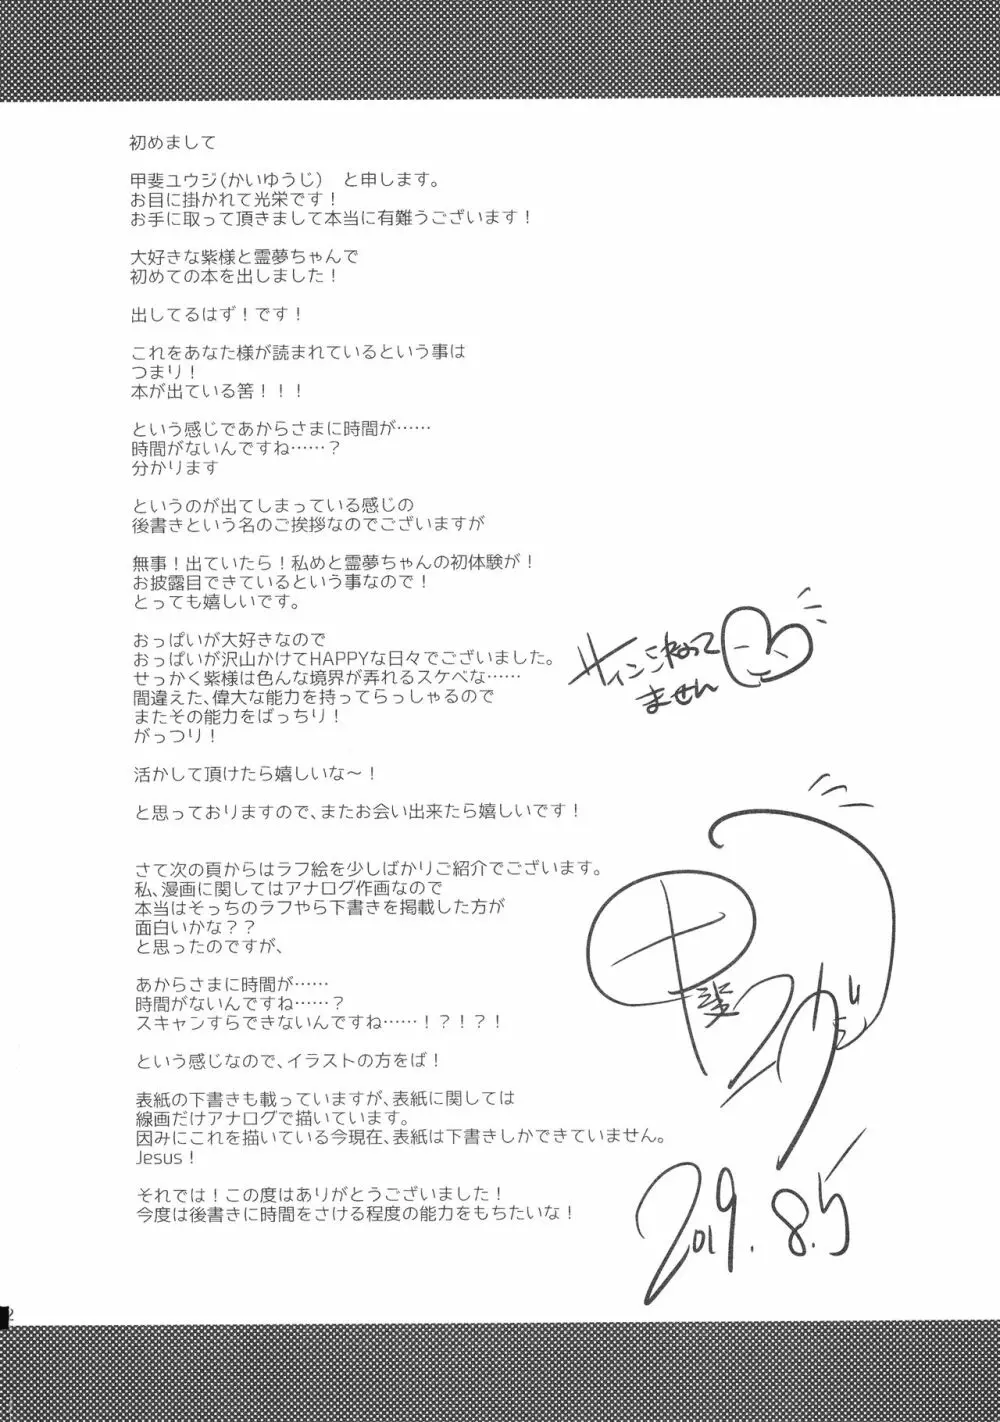 初めまして
甲斐ユウジ(かいゆうじ)　と申します。
お目に掛かれて光栄です！
お手に取って頂きまして本当に有難うございます！
大好きな紫様と霊夢ちゃんで
初めての本を出しました！
出してるはず！です！
これをあなた様が読まれているという事は
つまり！
本が出ている筈！！！
という感じであからさまに時間が……
時間がないんですね……？
分かります
というのが出てしまっている感じの
後書きという名のご挨拶なのでございますが
無事！出ていたら！私めと霊夢ちゃんの初体験が！
お披露目できているという事なので！
とっても嬉しいです。
おっぱいが大好きなので
おっぱいが沢山かけてHAPPYな日々でございました。
せっかく紫様は色んな境界が弄れるスケベな……
間違えた、偉大な能力を持ってらっしゃるので
またその能力をばっちり！
がっつり！
活かして頂けたら嬉しいな〜！
と思っておりますので、またお会い出来たら嬉しいです！
さて次の頁からはラフ絵を少しばかりご紹介でございます。
私、漫画に関してはアナログ作画なので
本当はそっちのラフやら下書きを掲載した方が
面白いかな？？
と思ったのですが、
あからさまに時間が……
時間がないんですね……？
スキャンすらできないんですね……！？！？！
という感じなので、イラストの方をば！
表紙の下書きも載っていますが、表紙に関しては
線画だけアナログで描いています。
因みにこれを描いている今現在、表紙は下書きしかできていません。
Jesus！
それでは！この度はありがとうございました！
今度は後書きに時間をさける程度の能力をもちたいな！
サイン
ません
甲斐
2019.8.5
2